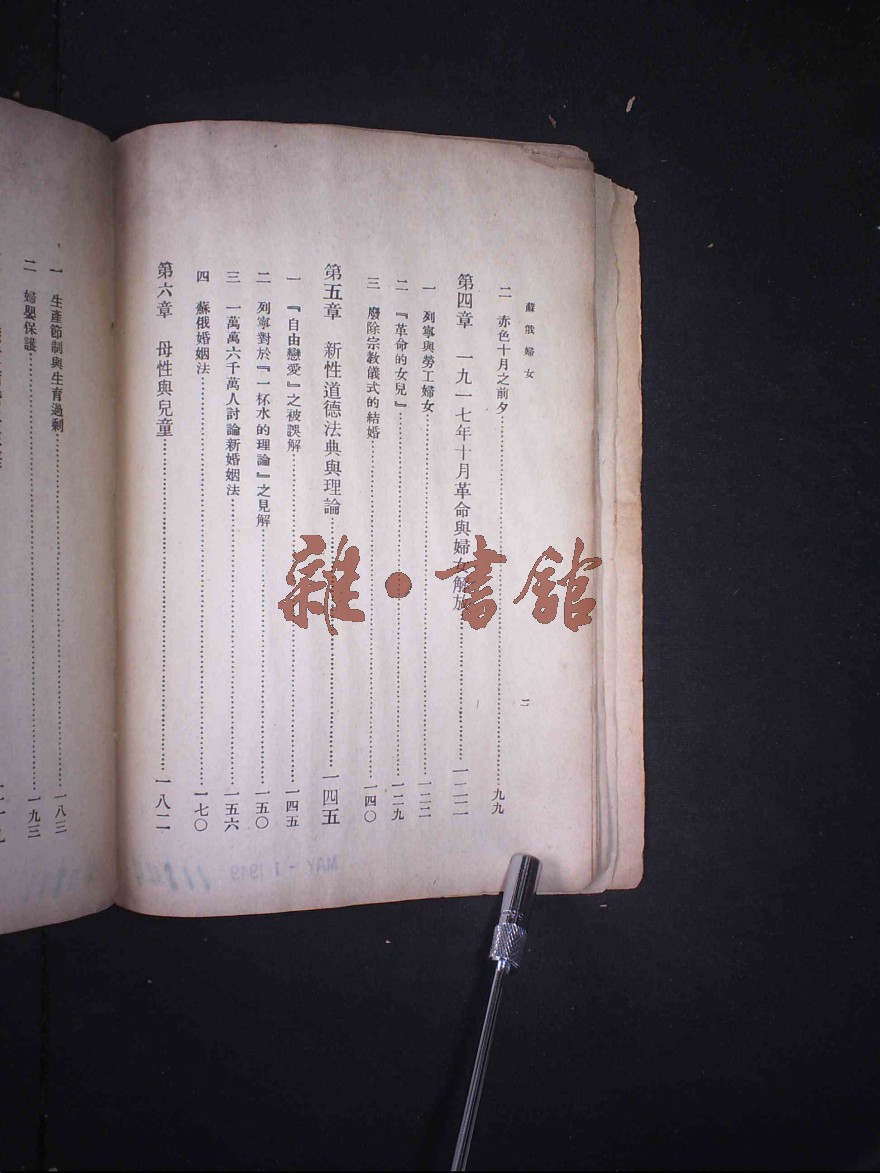 蘇俄婦女
二 赤色十月之前夕……九九
第四章 一九一七年十月革命與婦女解放……一二二
一 列寧與勞工婦女……一二二
二 『革命的女兒』……一二九
三 廢除宗教儀式的結婚……一四〇
第五章 新性道德法典與理論……一四五
一 『自由戀愛』之被誤解……一四五
二 列寧對於『一杯水的理論』之見解……一五〇
三 一萬萬六千萬人討論新婚姻法……一五六
四 蘇俄婚姻法……一七〇
第六章 母性與兒童……一八二
二
一 生產節制與生育過剩……一八三
二 婦嬰保護……一九三
雜·書館
MAY - 1 1949